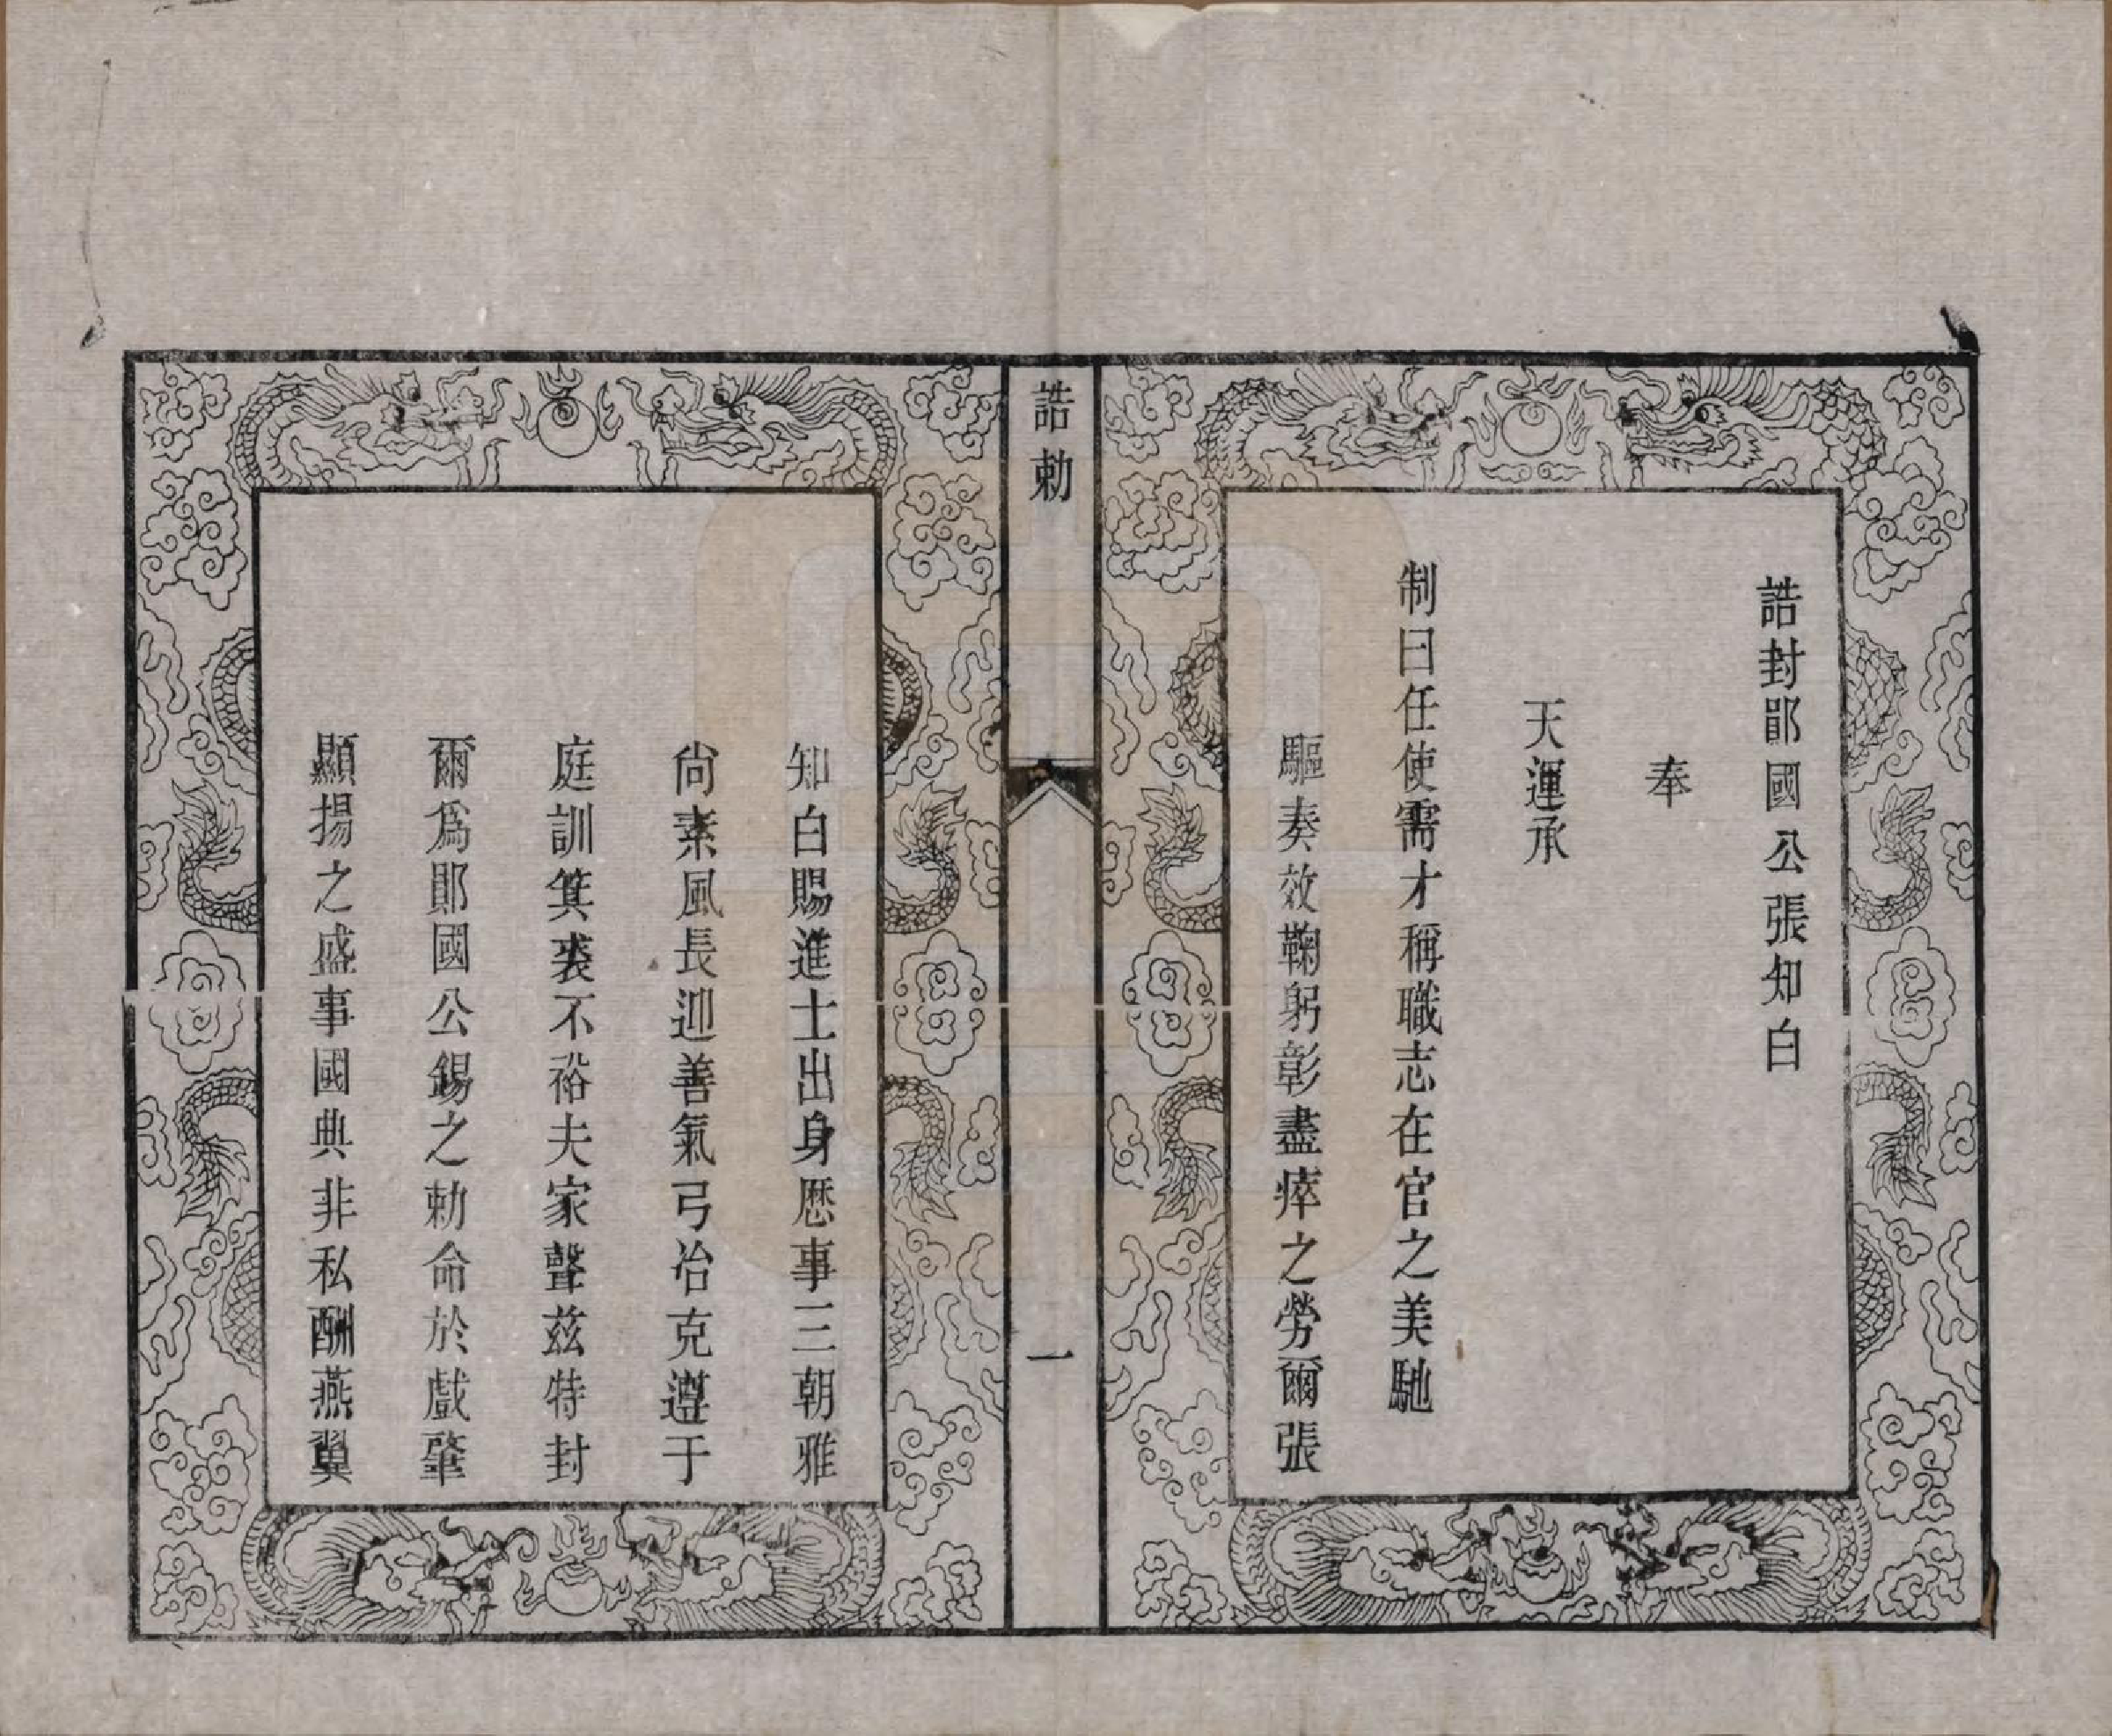 誥封郧國公張知白
奉
天運承
制曰任使需才稱職志在官之美馳
驅奏效鞠躬彰盡瘁之勞爾張
誥勅
一
知白賜進士出身歷事三朝雅
尚素風長迎善氣弓冶克遵于
庭訓箕裘不裕夫家聲茲特封
爾爲郧國公錫之勅命於戲肇
顯揚之盛事國典非私酬燕翼